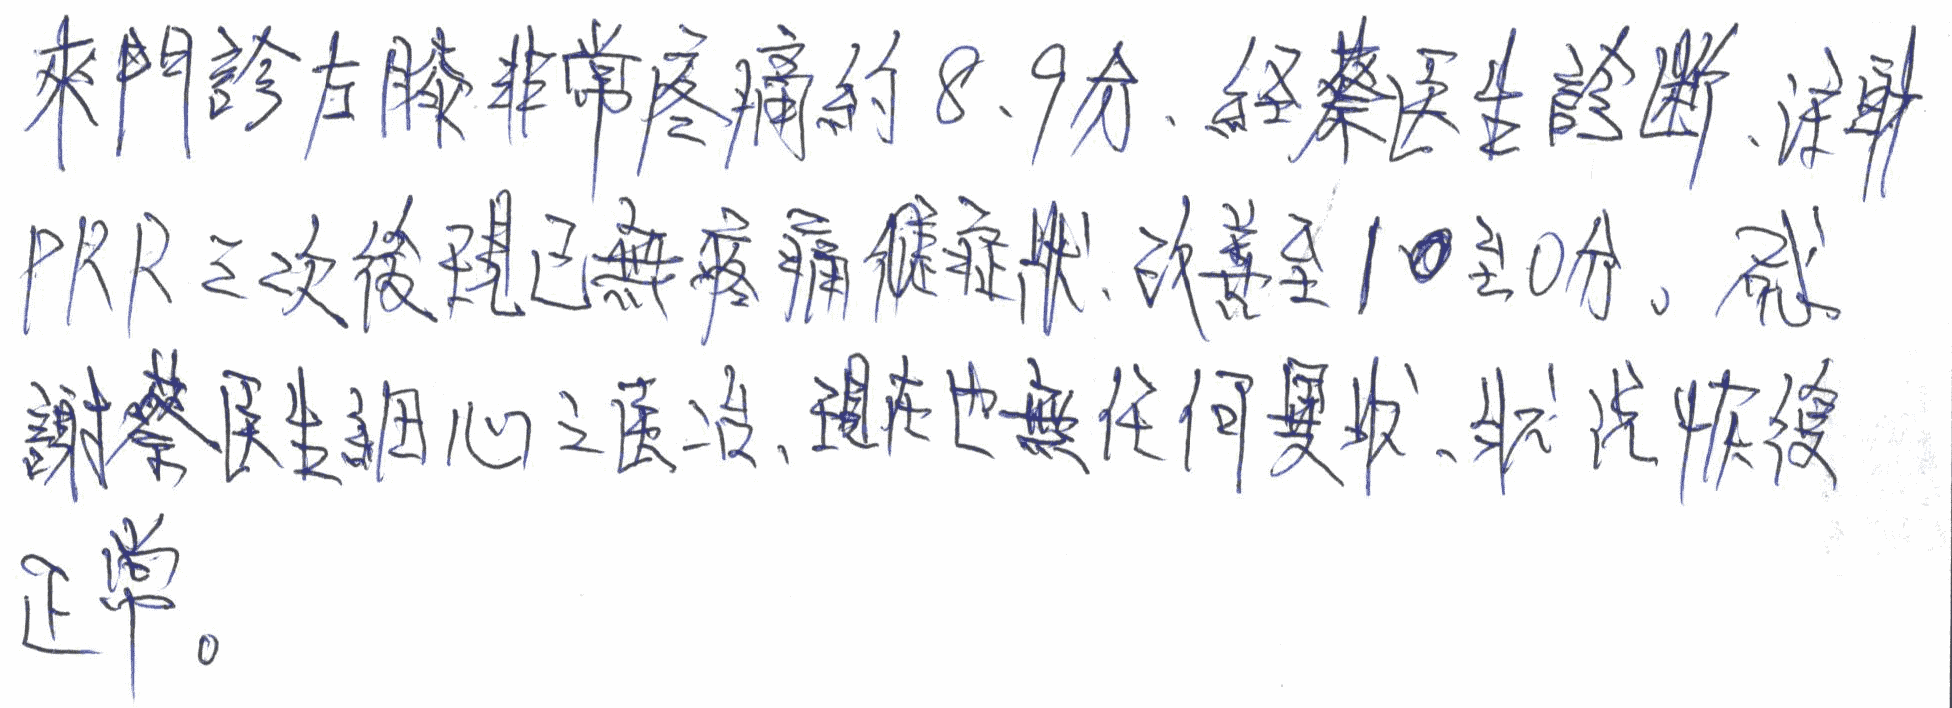 來門診左膝非常疼痛約8、9分、經蔡医生診斷、注射
PRR三次後現已無疼痛症狀、改善至10至0分。感
謝蔡医生細心之医治、現在也無任何異狀、狀況恢復
正常。